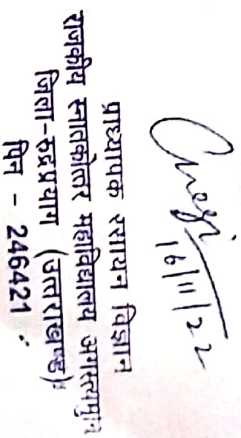 16/11/22
प्राध्यापक रसायन विज्ञान
राजकीय स्नातकोत्तर महाविद्यालय अगस्त्यमुनि
जिला-रुद्रप्रयाग (उत्तराखण्ड)
पिन - 246421